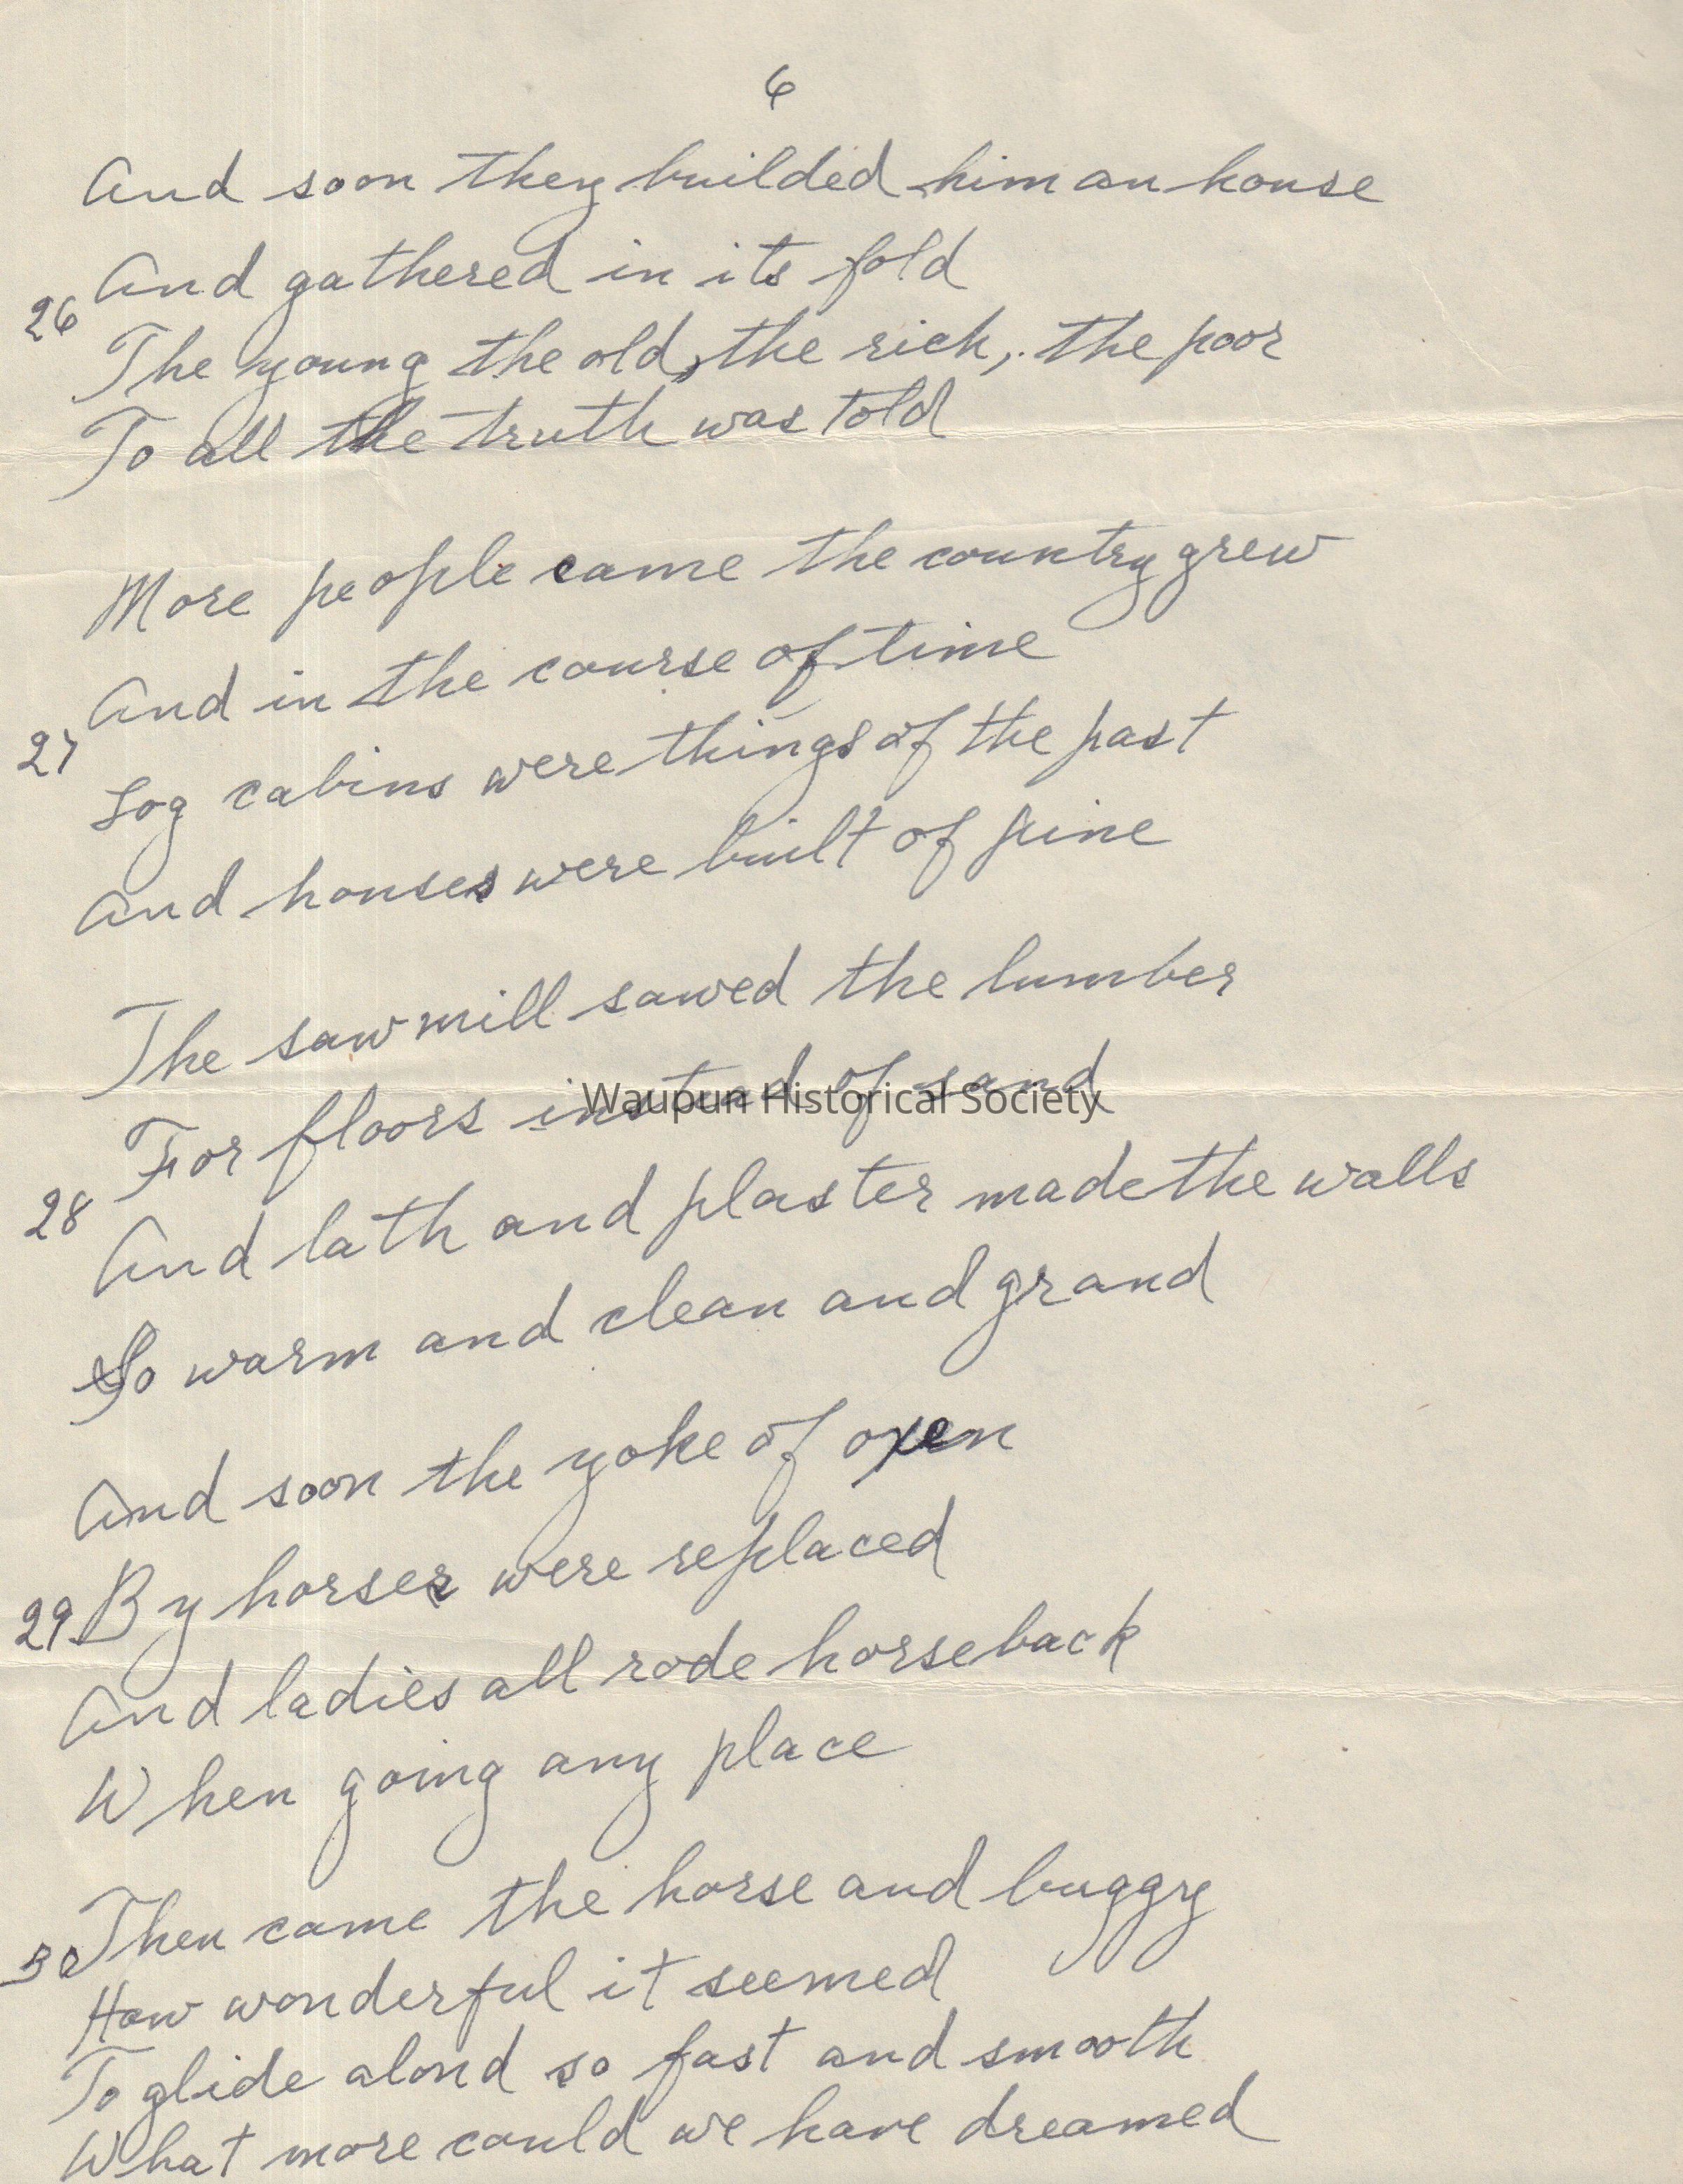 6
And soon they builded him an house
And gathered in its fold
26
The young the old, the rich, the poor
To all the truth was told
More people came the country grew
And in the course of time
27
Log cabins were things of the past
And houses were built of pine
The sawmill sawed the lumber
For floors instead of sand
Waupun Historical Society
28
And lath and plaster made the walls
So warm and clean and grand
And soon the yoke of oxen
29 By horses were replaced
And ladies all rode horseback
When going any place
30 Then came the horse and buggy
How wonderful it seemed
To glide alond so fast and smooth
What more could we have dreamed